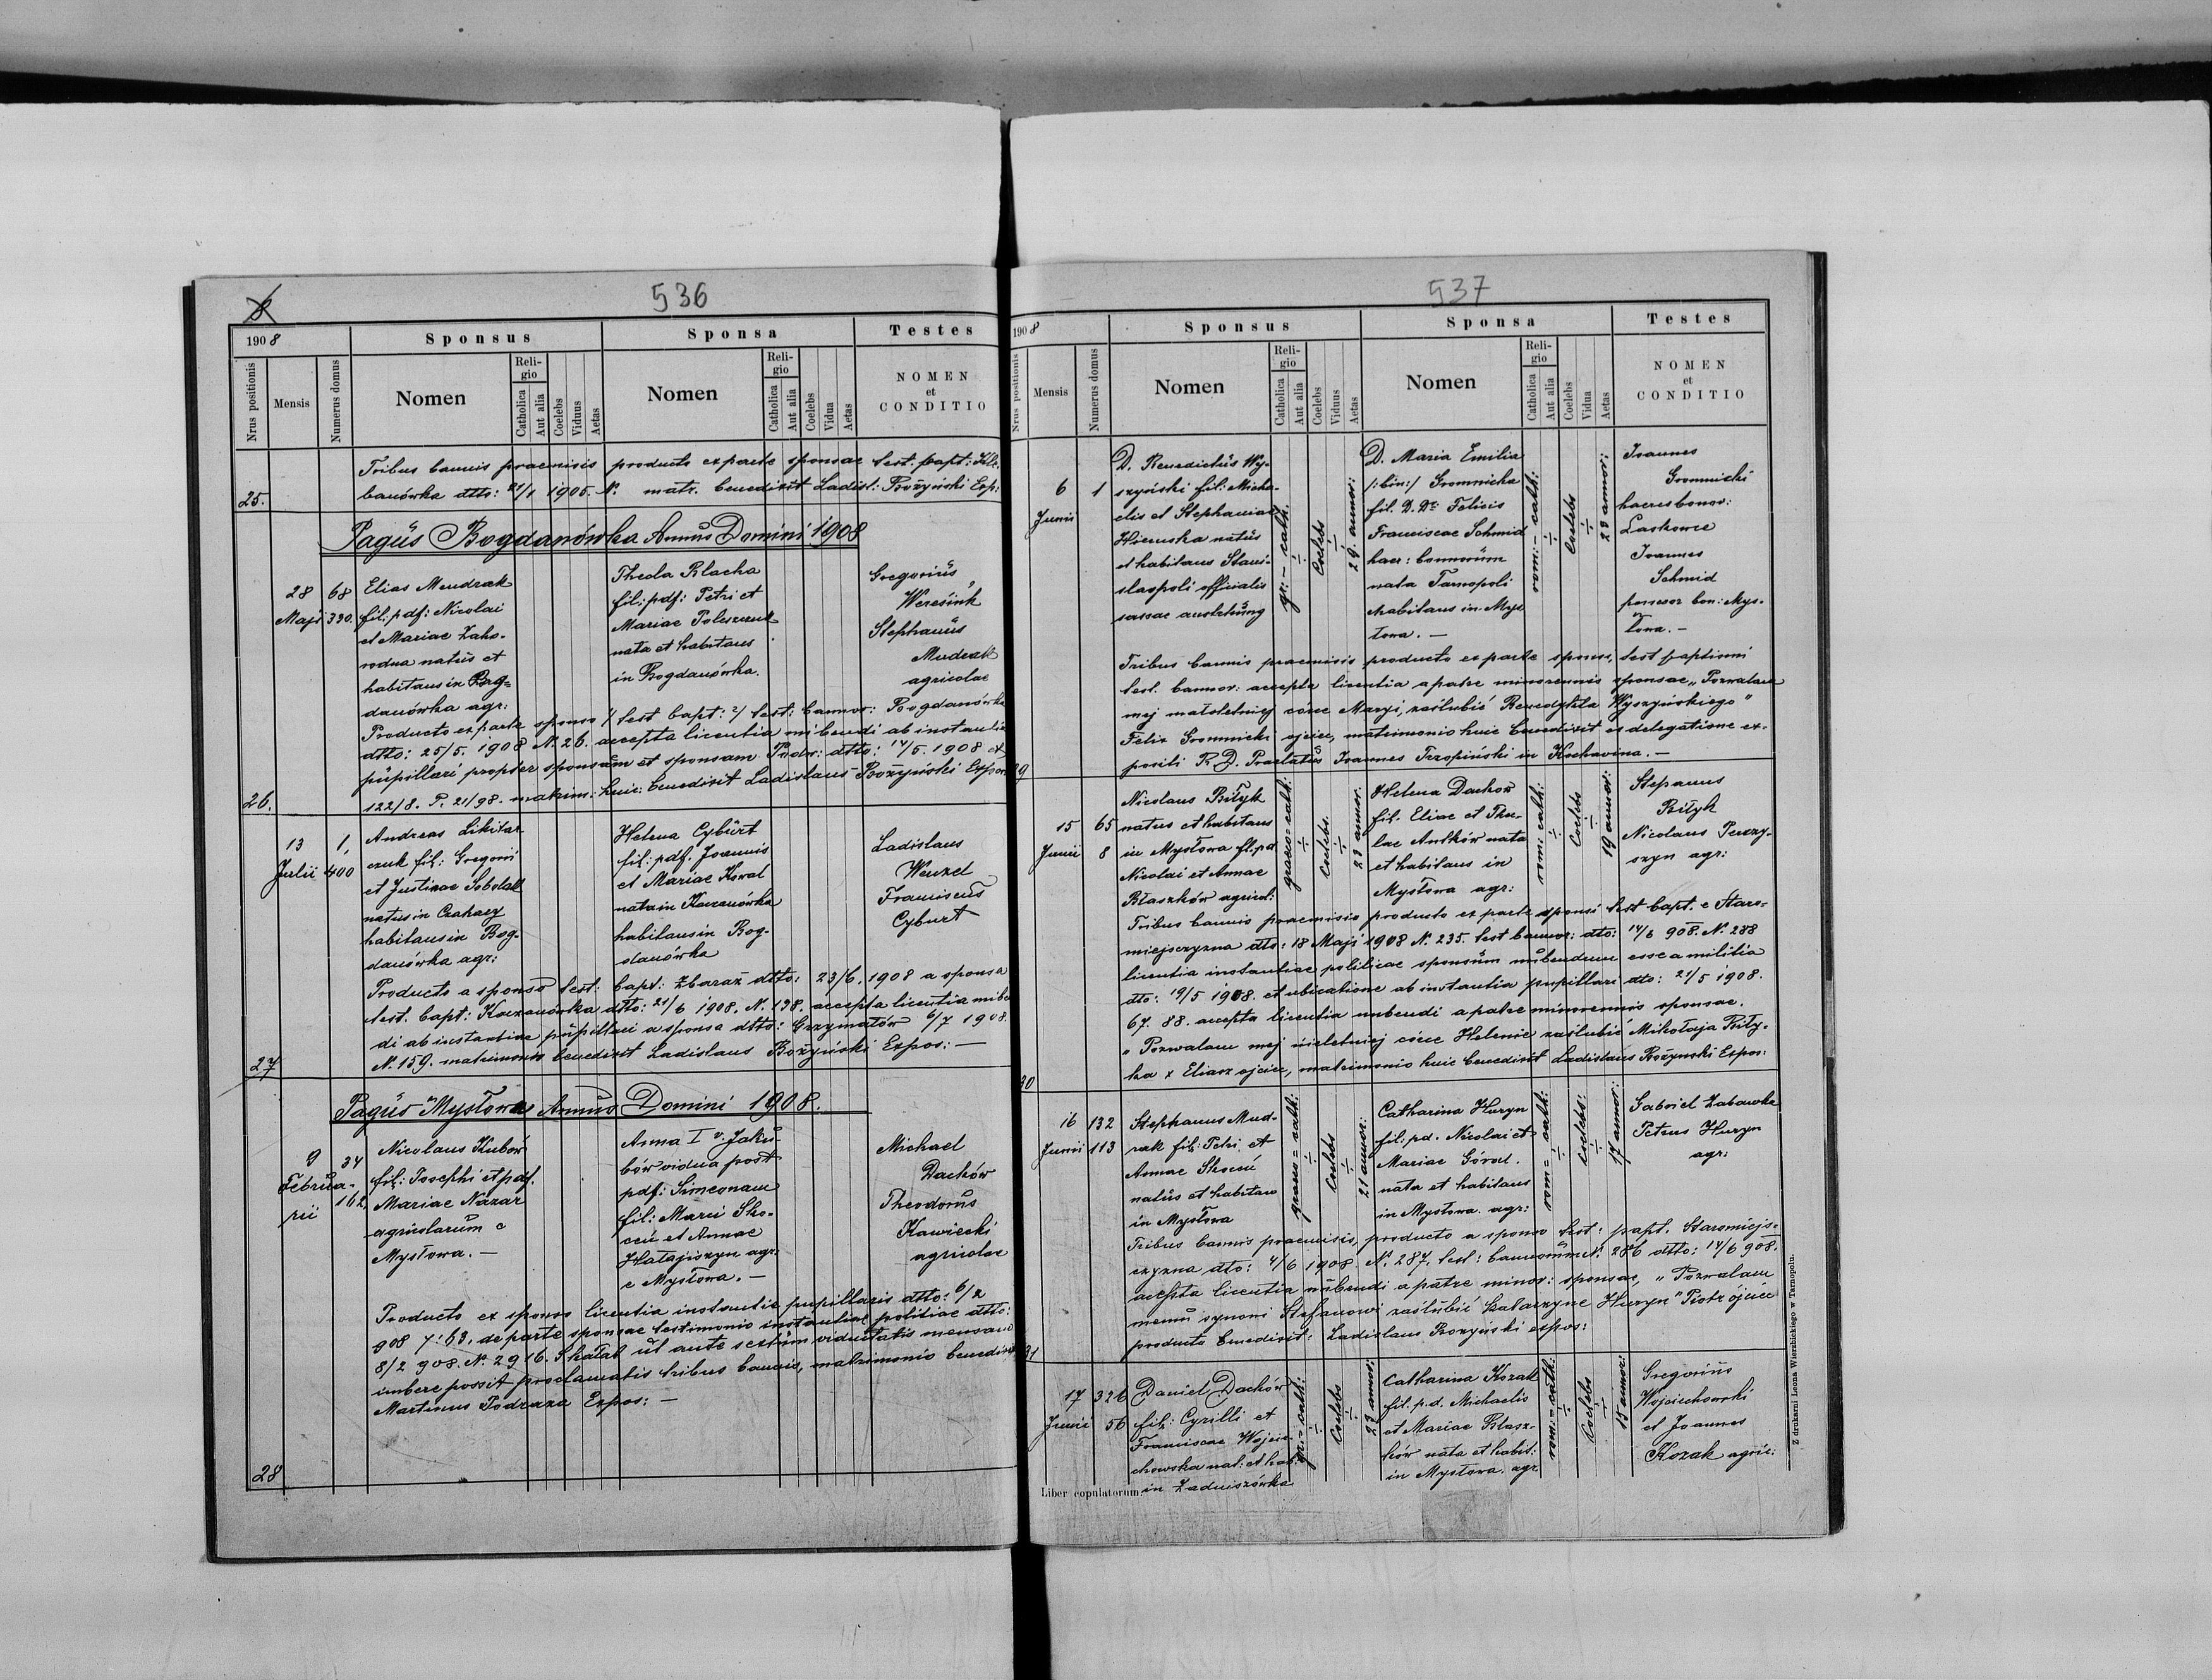 536
8
1908
Sponsus
Sponsa
Testes
Nrus positionis
Mensis
Numerus domus
Nomen
Religio
Catholica
Aut alia
Coelebs
Viduus
Aetas
Nomen
Religio
Catholica
Aut alia
Coelebs
Vidua
Aetas
NOMEN
et
CONDITIO
Tribus bannis praemisis producto ex parte sponsae test. bapt: Kle-
banówka dtto: 21/1 1905. N. matr. benedixit Ladisl: Bożyński Exp:
25.
Pagus Bogdanówka Annus Domini 1908
28 68
Maji 390.
Elias Mendrak
fil: pdf: Nicolai
et Mariae Zaho-
rodna natus et
habitans in Bog-
danówka agr:
Thecla Blacha
fil: pdf: Petri et
Mariae Poleszczuk
nata et habitans
in Bogdanówka.
Gregorius
Stephanus
Mudrak
agricolae
Producto ex parte sponso 1/ test bapt: 2/ test: bannor: Bogdanówka
dtto: 25/5. 1908 N. 26. accepta licentia nubendi ab instantia
pupillari propter sponsum et sponsam Podw: dtto: 14/5. 1908 et
122/8. P. 21/98. matrim: huic: benedixit Ladislaus Bożyński Expos
26.
13 1,
Julii 400
Andreas Likitar
czuk fil: Gregorii
et Justinae Sobolak
natus in Czahary
habitans in Bog-
danówka agr:
Helena Cyburt
fil: pdf. Joannis
et Mariae Kowal
nata in Kaczanówka
habitans in Bog-
danówka
Ladislaus
Wenzel
Franciscus
Cyburt
Producto a sponso test: bapt: Zbaraż dtto: 23/6. 1908 a sponsa
test. bapt: Kaczanówka dtto: 21/6 1908. N. 138. accepta licentia nube
di ab instantiae pupillari a sponsa dtto: Grzymałów 6/7 1908.
N. 159. matrimonio benedixit Ladislaus Bożyński Expos: —
27
Pagus "Mysłowa Annus Domini 1908.
9 34
Februa-
rii 162
Nicolaus Kubów
fil: Josephi et pdf.
Mariae Nazar
agricolarum e
Mysłowa. —
Anna I v. Jaku-
bów vidua post
pdf: Simeonem
fil: Marci Sko-
cen et Annae
Hałajszyn agr:
e Mysłowa. —
Michael
Dachów
Theodorus
Kawiecki
agricolae
Producto ex sponso licentia instantie pupillaris dtto: 6/2
908 7:63. de parte sponsae testimonio instantiae politiae dtto:
8/2 908. N. 2916. Skałat ut ante sextum viduitatis mensam
inibere possit proclamatis tribus bannis, matrimonio benedixit
Martinus Podraza Expos: —
28
537
1908
Sponsus
Sponsa
Testes
Nrus positionis
Mensis
Numerus domus
Nomen
Religio
Catholica
Aut alia
Coelebs
Viduus
Aetas
Nomen
Religio
Catholica
Aut alia
Coelebs
Vidua
Aetas
NOMEN
et
CONDITIO
6 1
Junii
D. Benedictus Wy-
szyński fil: Micha-
elis et Stephaniae
natus
et habitans Stani-
slaopoli officialis
gr: - cath:
Coelebs
29. annor:
D. Maria Emilia
/:bin:/ Gromnicka
fil. D. Dr. Felicis
Franciscae Schmid
haer: bonnorum
nata Tarnopoli
habitans in Mys
łowa. —
rom: - cath:
Coelebs
23 annor:
Joannes
Gromnicki
haeres bonor:
Laskowce
Joannes
Schmid
possesor bon: Mys-
łowa. —
Tribus bannis praemisis producto ex parte sponsi, test baptismi
test. bannor: accepta licentia a patre minorennis sponsae „Pozwalam
mej małoletniej córce Maryi, zaślubić Benedykta Wyszyńskiego"
Felix Gromnicki ojciec, matrimonio huic benedixit ex delegatione ex-
positi R. D. Praelatus Joannes Trzopiński in Kochawina. —
29
15 65
Junii 8
Nicolaus Biłyk
natus et habitans
in Mysłowa fil. pd
Nicolai et Annae
Błaszków agricol:
graeco=cath:
Coelebs.
23 annor:
Helena Dachów
fil. Eliae et The-
lae Antków nata
et habitans in
Mysłowa agr:
rom: cath:
Coelebs
19 annor:
Stepanus
Biłyk
Nicolaus Perczy-
szyn agr:
Tribus bannis praemisis producto ex parte sponsi test bapt. e Staro-
miejszczyzna dto: 18 Maji 1908 N. 235. test bannor: dto: 14/6 908. N. 288
licentia instantiae politicae sponsum nubendum esse a militia
dto: 19/5 1908. et ubicatione ab instantia pupillari dto: 21/5 1908.
67. 88. accepta licentia nubendi a patre minorennis sponsae.
„Pozwalam mej nieletniej córce Helenie zaślubić Mikołaja Biły-
ka x Eliasz ojciec, matrimonio huic benedixit Ladislaus Bożynski Expos:
30
16 132
Junii 113
Stephanus Mud-
rak fil: Petri et
Annae Skocen
natus et habitans
in Mysłowa
graeco=cath:
Coelebs
21 annor:
Catharina Huryn
fil: pd. Nicolai et
Mariae Góral.
nata et habitans
in Mysłowa. agr:
rom= cath:
Coelebs:
17 annor:
Gabriel Zabawka
Petrus Huryn
agr:
Tribus bannis praemisis, producto a sponso test: bapt. Staromiejs-
czyzna dto: 4/6 1908 N. 287, test: bannorum N. 286 dtto: 14/6 908.
acepta licentia nubendi a patre minor: sponsae, „Pozwalam
memu synowi Stefanowi zaślubić Katarzynę Huryn" Piotr ojciec
producto benedixit: Ladislaus Bozyński expos:
31
17 326
Junii 56
Daniel Dachów
fil: Cyrilli et
Franciscae Wojcie-
chowska nat: et hab:
in Zadniszówka
gr. = cath:
Coelebs
23 annor:
Catharina Kozak
fil. p.d. Michaelis
et Mariae Błasz-
ków nata et habit:
in Mysłowa. agr.
rom: - cath.
Coelebs
15 annor:
Gregorius
Wojciechowski
et Joannes
Kozak agric:
Liber copulatorum.
Z drukarni Leona Wierzbickiego w Tarnopolu.